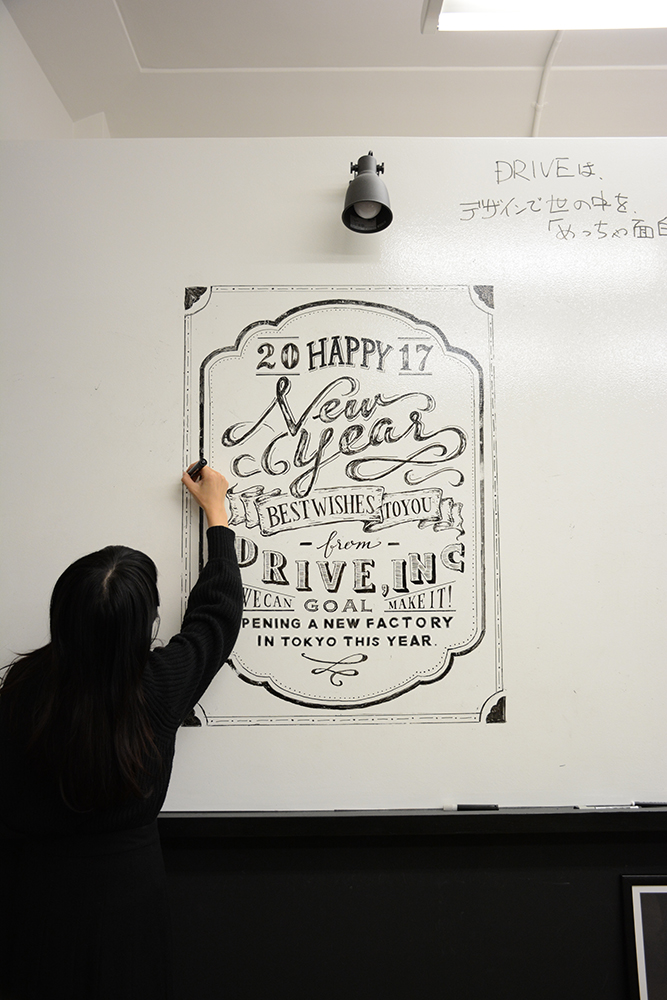 DRIVEは、
デザインで世の中を、
「めっちゃ面白
20 HAPPY 17
New
Year
BEST WISHES TO YOU
- from -
DRIVE, INC
WE CAN GOAL MAKE IT!
PENING A NEW FACTORY
IN TOKYO THIS YEAR.